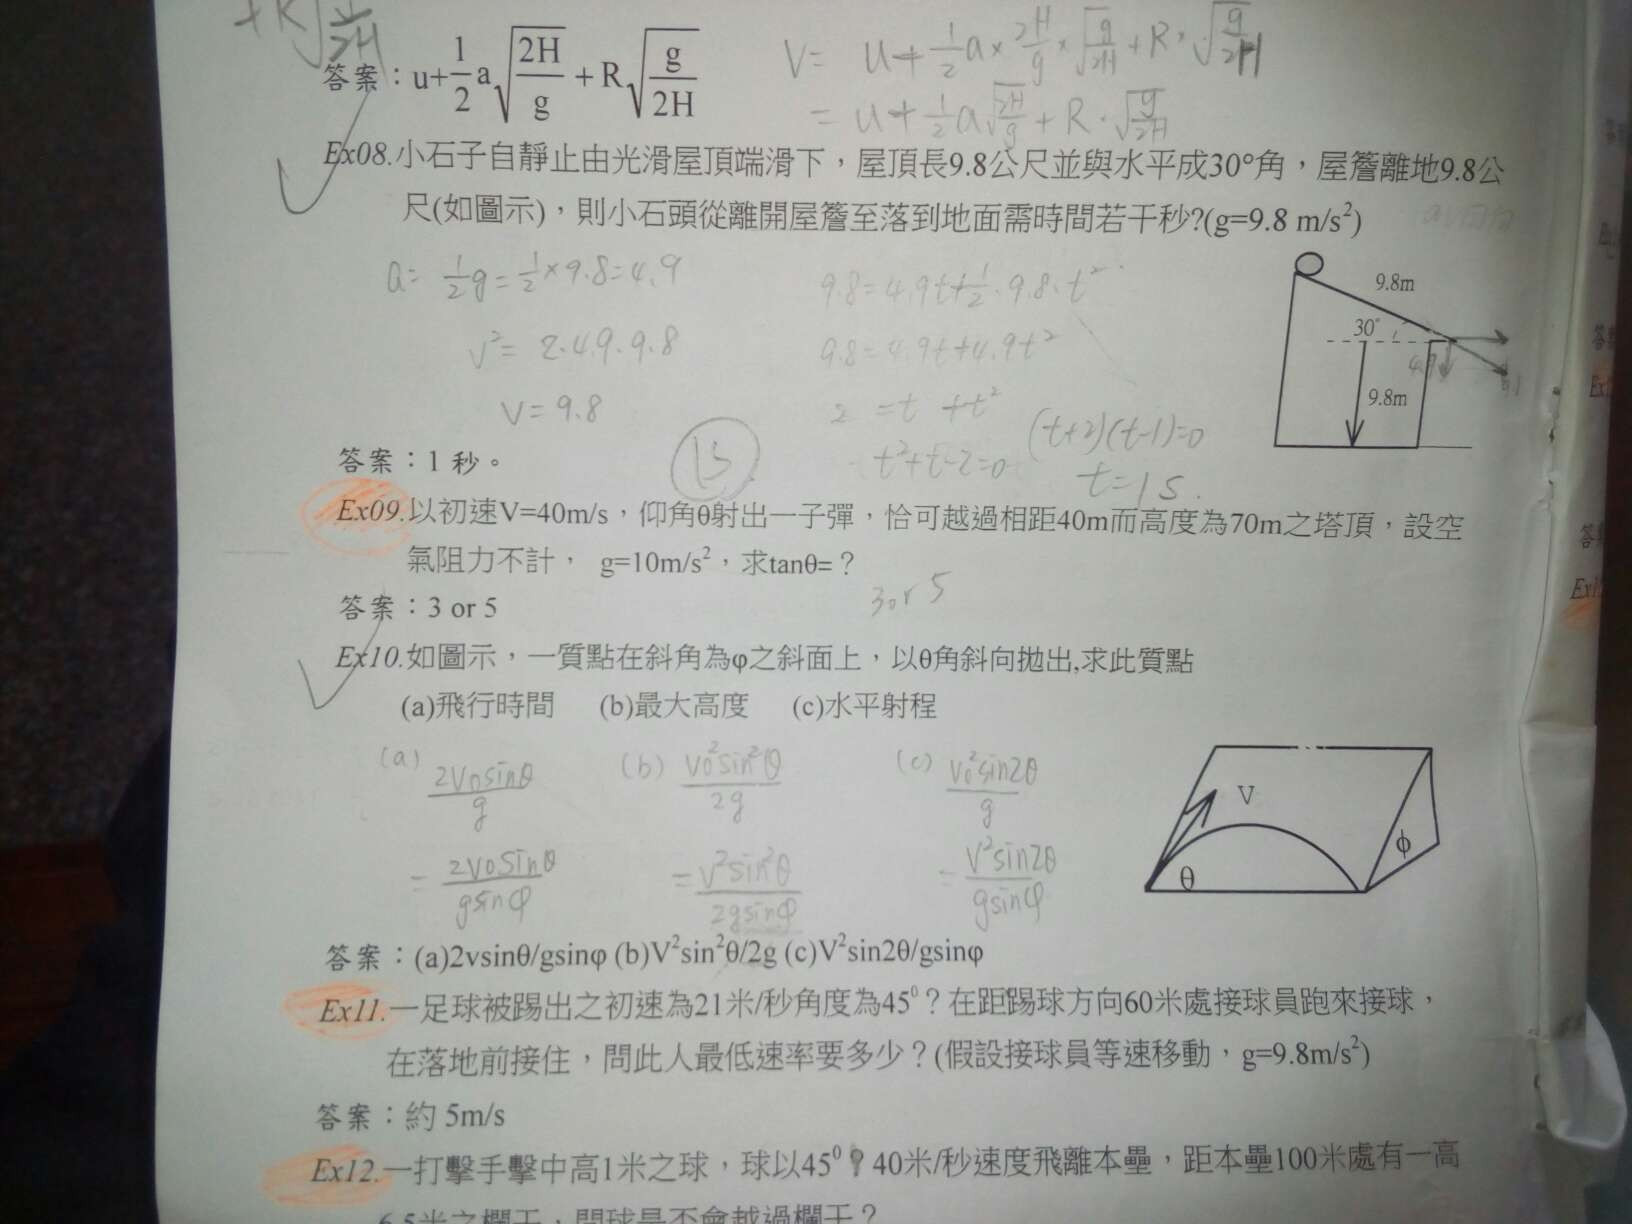 答案：u+1/2 a√(2H/g) + R√(g/2H)
V= u+1/2 a×2H/g×√(g/2H)+R×√(g/2H)
= u+1/2 a√(2H/g)+R·√(g/2H)
Ex08.小石子自靜止由光滑屋頂端滑下，屋頂長9.8公尺並與水平成30°角，屋簷離地9.8公
尺(如圖示)，則小石頭從離開屋簷至落到地面需時間若干秒?(g=9.8 m/s²)
a= 1/2 g=1/2×9.8=4.9
v²= 2·4.9·9.8
v=9.8
9.8=4.9t+1/2·9.8·t²
9.8=4.9t+4.9t²
2 =t +t²
t²+t-2=0
(t+2)(t-1)=0
t=1s.
1s
9.8m
30°
4.9
9.8m
答案：1 秒。
Ex09.以初速V=40m/s，仰角θ射出一子彈，恰可越過相距40m而高度為70m之塔頂，設空
氣阻力不計， g=10m/s²，求tanθ=？
3 or 5
答案：3 or 5
Ex10.如圖示，一質點在斜角為φ之斜面上，以θ角斜向拋出,求此質點
(a)飛行時間 (b)最大高度 (c)水平射程
(a) 2V₀sinθ/g (b) V₀²sin²θ/2g (c) V₀²sin2θ/g
= 2V₀sinθ/gsinφ = V²sin²θ/2gsinφ = V²sin2θ/gsinφ
V
θ
ϕ
答案：(a)2vsinθ/gsinφ (b)V²sin²θ/2g (c)V²sin2θ/gsinφ
Ex11.一足球被踢出之初速為21米/秒角度為45⁰？在距踢球方向60米處接球員跑來接球，
在落地前接住，問此人最低速率要多少？(假設接球員等速移動，g=9.8m/s²)
答案：約 5m/s
Ex12.一打擊手擊中高1米之球，球以45⁰，40米/秒速度飛離本壘，距本壘100米處有一高
6.5米之欄干，問球是不會越過欄干？